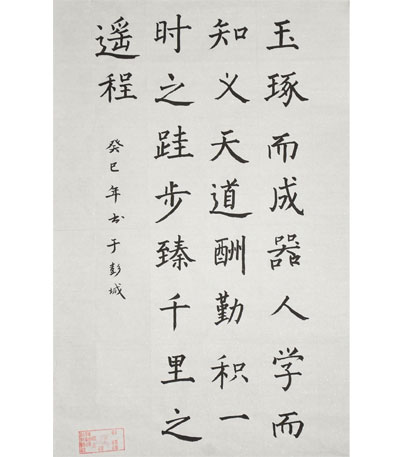 玉琢而成器人学而
知义天道酬勤积一
时之跬步臻千里之
遥程
癸巳年书于彭城